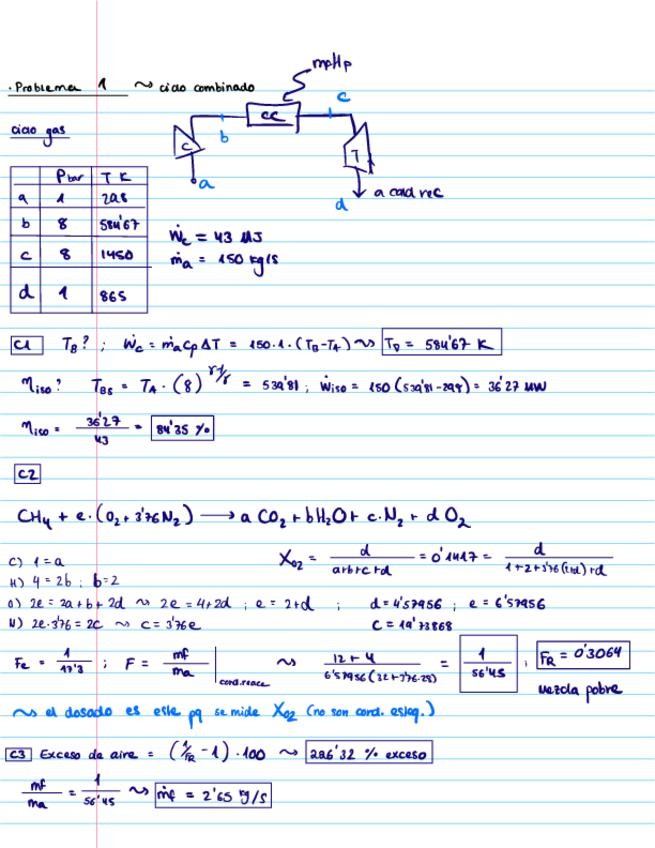 · Problema 1 ~ ciclo combinado
ṁpHp
ciclo gas
CC
c
b
C
T
a
d
a cald rec
Pbar T K
a 1 298
b 8 584'67
c 8 1450
d 1 865
Ẇc = 43 MJ
ṁa = 150 kg/s
C1 TB? ; Ẇc = ṁa cp ΔT = 150·1·(TB-TA) ~> TB = 584'67 K
ηiso? TBS = TA · (8)^(γ-1/γ) = 539'81 ; Ẇiso = 150 (539'81-298) = 36'27 MW
ηiso = 36'27/43 = 84'35 %
C2
CH4 + e·(O2+3'76N2) → a CO2 + bH2O + c·N2 + d O2
C) 1=a
XO2 = d/(a+b+c+d) = 0'1417 = d/(1+2+3'76(2+d)+d)
H) 4=2b ; b=2
O) 2e = 2a+b+2d ~> 2e = 4+2d ; e = 2+d ; d=4'57956 ; e = 6'57956
N) 2e·3'76 = 2c ~> c = 3'76e c = 19'73868
Fe = 1/17'3 ; F = mf/ma | cond.reacc ~> (12+4)/(6'57956(32+3'76·28)) = 1/56'45 ; FR = 0'3064
mezcla pobre
~> el dosado es este pq se mide XO2 (no son cond. esteq.)
C3 Exceso de aire = (1/FR -1)·100 ~> 226'32 % exceso
mf/ma = 1/56'45 ~> ṁf = 2'65 kg/s